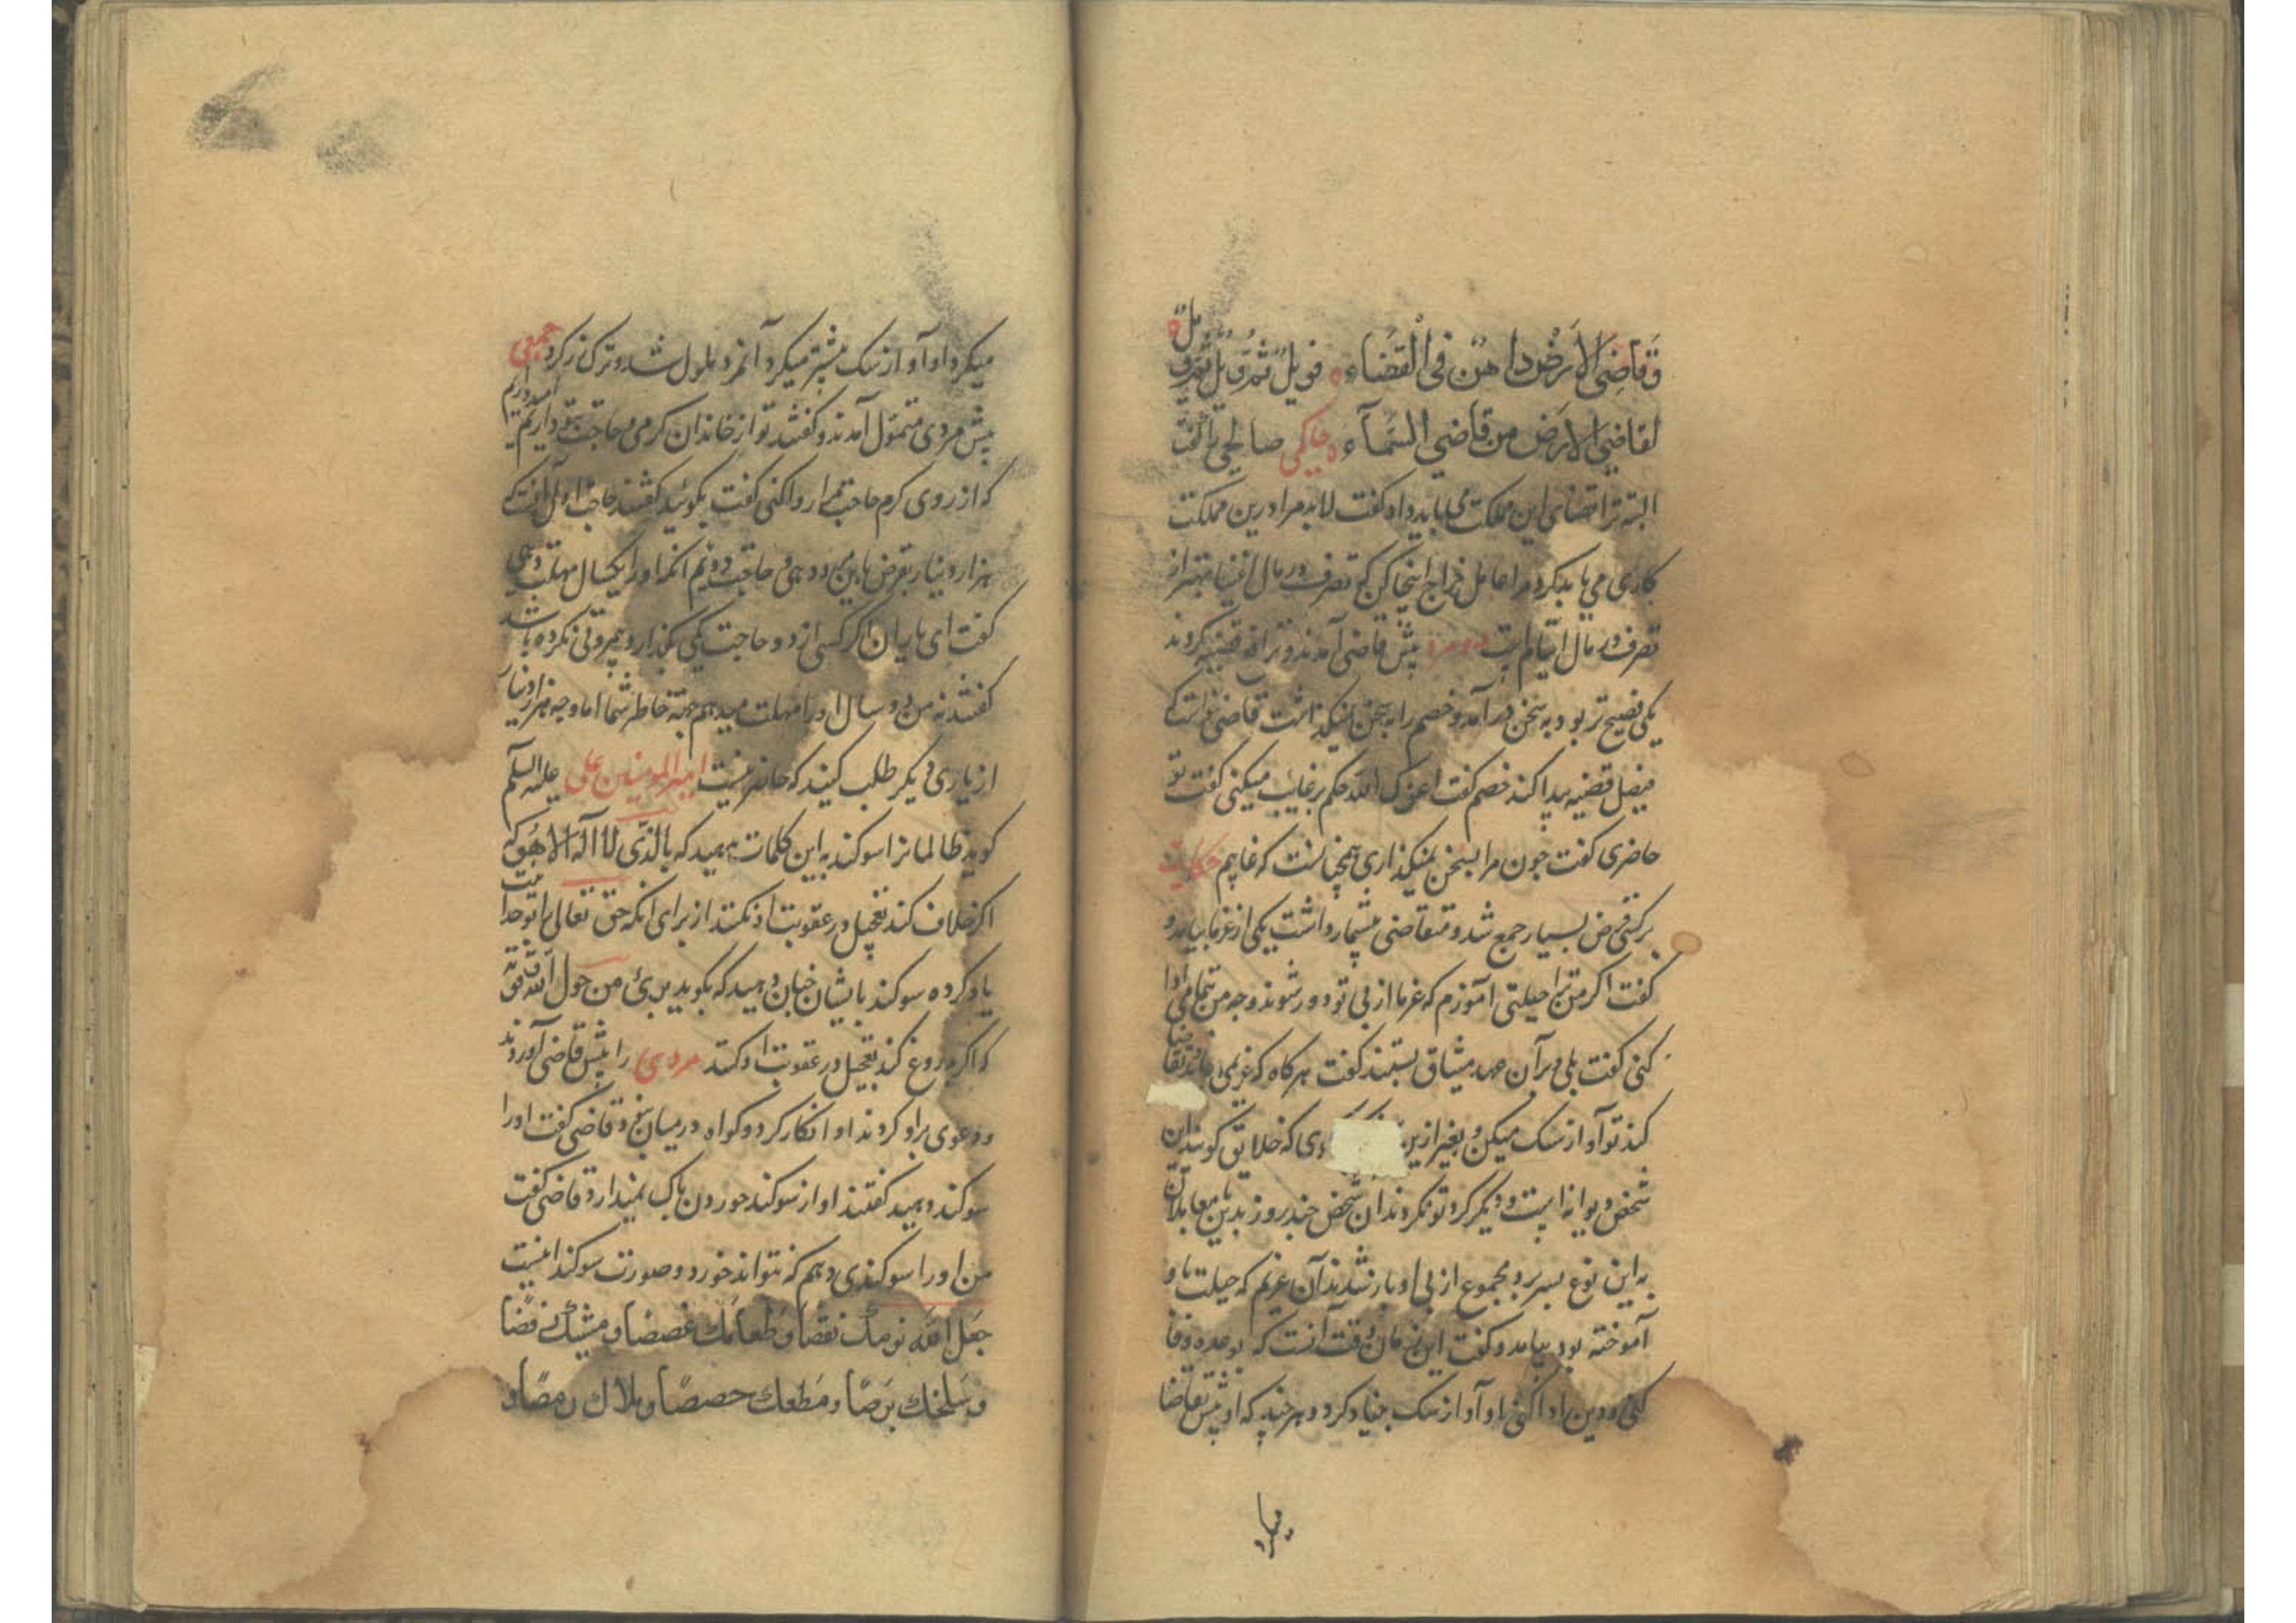 وَقاضِی الاَرْضِ داهَن فی الْقَضَاء فویلٌ ثمّ ویلٌ ثمّ ویلٌ
لقاضی الارض من قاضی السَّمآء حاکمی صالحی را گفت
البته ترا قضای این مملکت می باید داد گفت لابد مرا درین مملکت
کاری می باید کرد مرا عامل خراج اینجا کن که تصرف در مال اغنیا بهتر از
تصرف در مال ایتام است دو مرد پیش قاضی آمدند و ترافع قضیه کردند
یکی فصیح تر بود به سخن درآمد و خصم را به سخن نمیکذاشت قاضی خواست که
فیصل قضیه پیدا کند خصم کفت اعزک الله حکم بر غایب میکنی کفت تو
حاضری کفت چون مرا بسخن نمیکذاری همچنانست که غایبم حکایت
برکسی قرض بسیار جمع شد و متقاضی بیشمار داشت یکی از غرما بیامد و
کفت اکر من ترا حیلتی آموزم که غرما از پی تو دور شوند وجه من بتمامی ادا
کنی کفت بلی و برآن عهد و میثاق بستند کفت هر کاه که غریمی تقاضا
کند تو آواز سک میکن و بغیر ازین دی که خلایق کویند این
شخص دیوانه است و دیکر کرد تو نکردند آن شخص چند روز بدین معامله با آن
به این نوع بسر برد مجموع از پی او باز شدند آن غریم که حیلت با و
آموخته بود بیامد و کفت این زمان وقت آنست که بوعده وفا
کنی و دین ادا کنی او آواز سک بنیاد کرد و هر چند که او بیش تقاضا
میکرد
میکرد او آواز سک بیشتر میکرد آنمرد ملول شد و ترک زر کرد جمعی
پیش مردی متموّل آمدند و کفتند تو از خاندان کرمی و حاجتی بتو داریم امیدواریم
که از روی کرم حاجت ما را روا کنی کفت بکوئید کفتند حاجت اول آنست که
هزار دینار بقرض باین مرد دهی و حاجت دویم آنکه او را یکسال مهلت دهی
کفت ای یاران اکر کسی از دو حاجت یکی بکذارد بی مروتی نکرده باشد
کفتند نه من دو سال او را مهلت میدهم بجهة خاطر شما اما وجه هزار دینار
از یاری دیکر طلب کنید که حاضر نیست امیر المومنین علی علیه السلم
کوید ظالمانرا سوکند به این کلمات بدهید که بالّذی لا اله الا هو که
اکر خلاف کند تعجیل در عقوبت او نکنند از برای آنکه حق تعالی را بوحدانیت
یاد کرده سوکند بایشان چنان دهید که بکوید بریٔ من حول الله و قوته
که اکر دروغ کند تعجیل در عقوبت او کنند مردی را پیش قاضی آوردند
و دعوی برو کردند او انکار کرد و کواه در میان نبود قاضی کفت او را
سوکند دهید کفتند او از سوکند خوردن باک نمیدارد قاضی کفت
من او را سوکندی دهم که نتواند خورد و صورت سوکند اینست
جعل الله نومک نغصا و طعامک غصصا و مشیک رقصا
و سلخک برصًا و مطعک حصصًا و بلاک رمصًا و